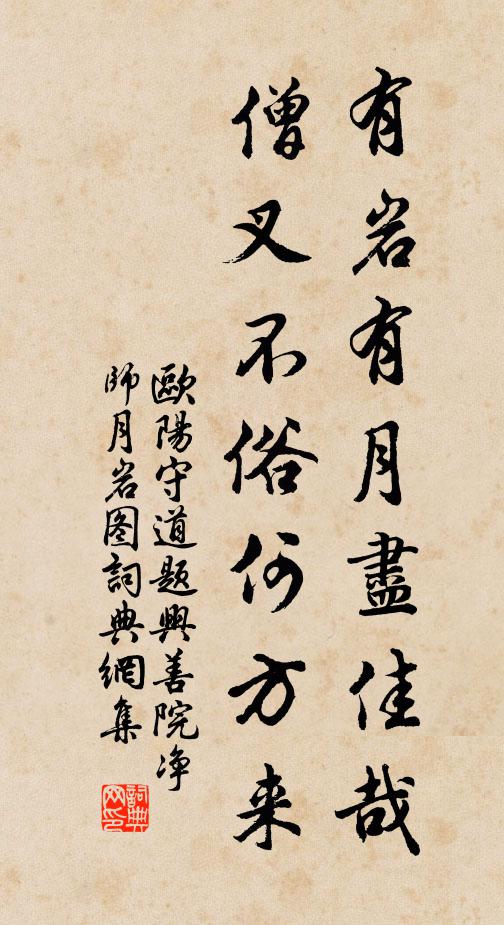 有岩有月盡佳哉
僧又不俗何方来
歐陽守道題興善院净
師月岩图詞典網集
詞典网印